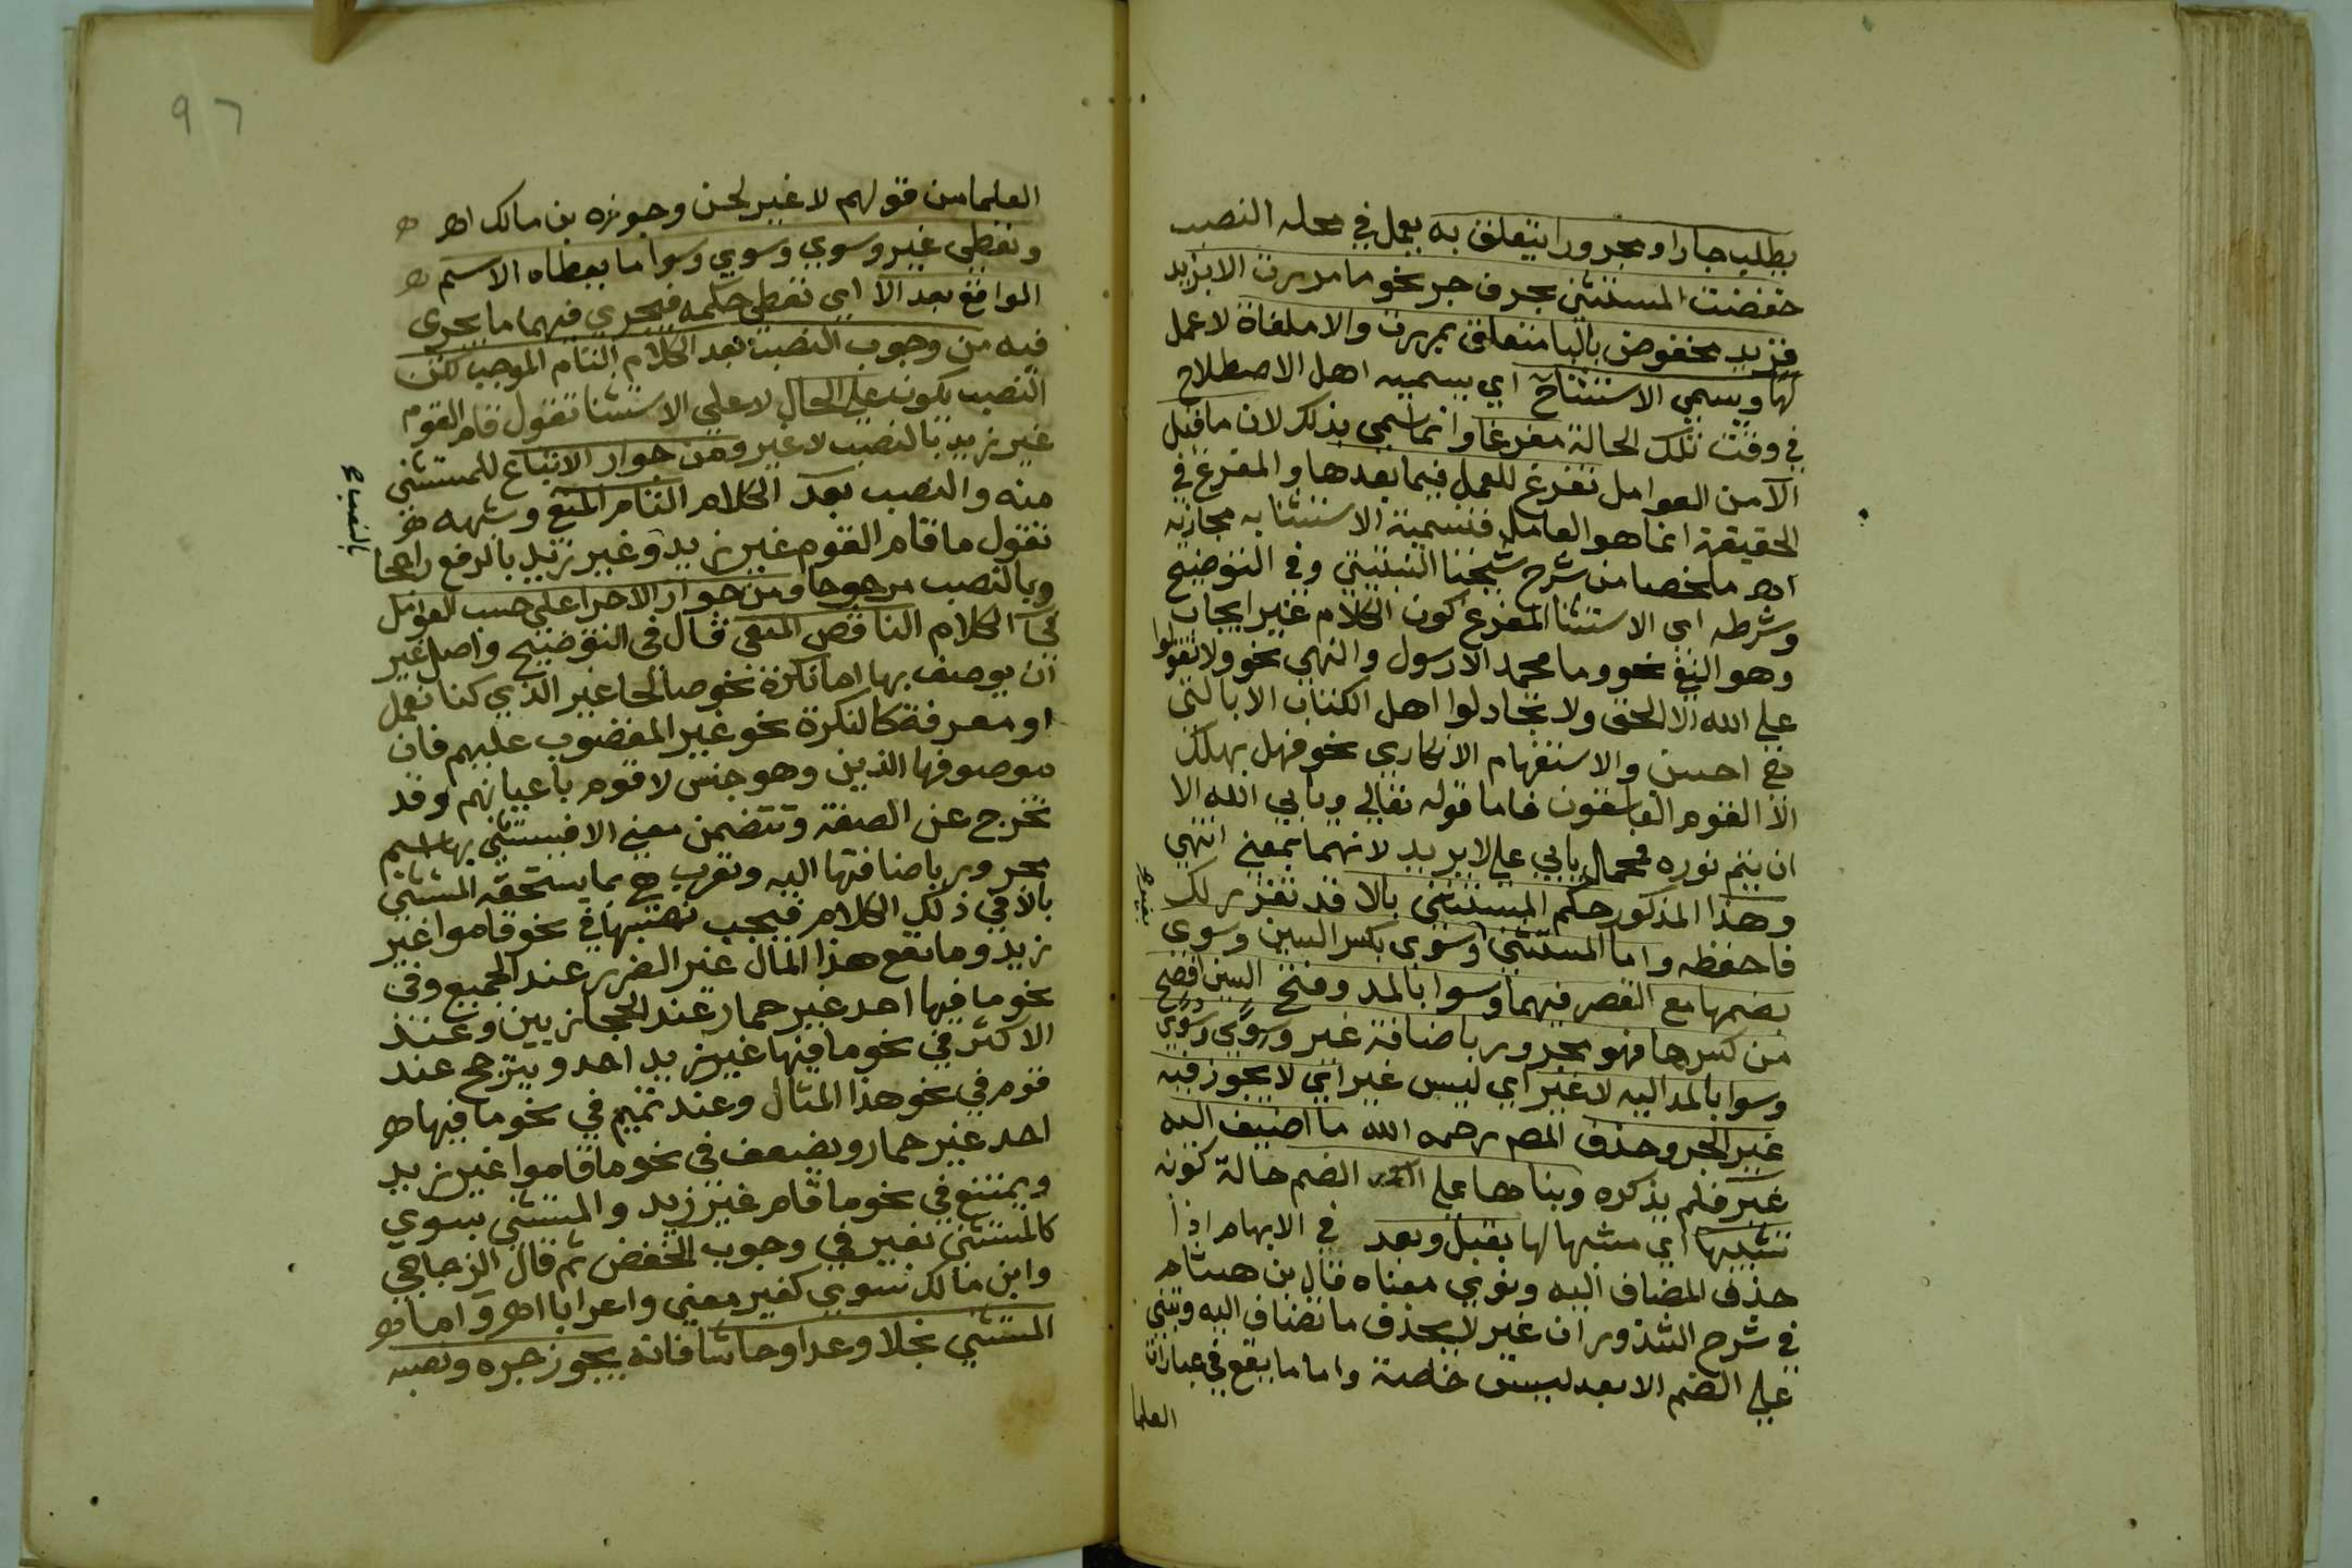 يطلب جارا ومجرورا يتعلق به يعمل في محله النصب
خفضت المستثنى بحرف جر نحو ما مررت الا بزيد
فزيد مخفوض بالبا متعلق بمررت والا ملغاة لا عمل
لها ويسمى الاستثنا ح اي يسميه اهل الاصطلاح
في وقت تلك الحالة مفرغا وانما سمي بذلك لان ما قبل
الا من العوامل تفرغ للعمل فيما بعدها والمفرغ في
الحقيقة انما هو العامل فتسمية الاستثنا به مجازيه
اهـ ملخصا من شرح شيخنا النبتيتي وفي التوضيح
وشرطه اي الاستثنا المفرغ كون الكلام غير ايجاب
وهو النفي نحو وما محمد الا رسول والنهي نحو ولا تقولوا
على الله الا الحق ولا تجادلوا اهل الكتاب الا بالتي
هي احسن والاستفهام الانكاري نحو فهل يهلك
الا القوم الفاسقون فاما قوله تعالى ويابى الله الا
ان يتم نوره فحمل يابي على لا يريد لانهما بمعنى انتهى
وهذا المذكور حكم المستثنى بالا قد تقرر لك
فاحفظه واما المستثنى وسوى بكسر السين وسوى
بغير و
بضمها مع القصر فيهما وسوا بالمد وفتح السين افصح
من كسرها فهو مجرور باضافة غير وسوى وسوى
وسوا بالمد اليه لا غير اي ليس غير اي لا يجوز فيه
غير الجر وحذف المص رحمه الله ما اضيف اليه
غير فلم يذكره وبناها على الضم حالة كونه
تشبيها اي مشبها لها بقبل وبعد في الابهام اذا
حذف المضاف اليه ونوي معناه قال بن هشام
في شرح الشذور ان غير لا يحذف ما تضاف اليه وتبنى
على الضم الا بعد ليس خاصة واما ما يقع في عبارات
العلما
العلما من قولهم لا غير لحن وجوزه بن مالك اهـ
وتعطى غير وسوى وسوى وسوا ما يعطاه الاسم
الواقع بعد الا اي تعطى حكمه فيجري فيهما ما يجري
فيه من وجوب النصب بعد الكلام التام الموجب لكن
النصب يكون على الحال لا على الاستثنا تقول قام القوم
غير زيد بالنصب لا غير ومن جواز الاتباع للمستثنى
منه والنصب بعد الكلام التام المنفي وشبهه
تقول ما قام القوم غير زيد وغير زيد بالرفع راجحا
وبالنصب مرجوحا ومن جواز الاجرا على حسب العوامل
في الكلام الناقص المنفي قال في التوضيح واصل غير
ان يوصف بها اما نكرة نحو صالحا غير الذي كنا نعمل
او معرفة كالنكرة نحو غير المغضوب عليهم فان
موصوفها الذين وهو جنس لا قوم باعيانهم وقد
تخرج عن الصفة وتتضمن معنى الا فيستثنى بها اسم
مجرور باضافتها اليه وتعرب هي بما يستحقه المستثنى
بالا في ذلك الكلام فيجب نصبها في نحو قاموا غير
زيد وما نفع هذا المال غير الضرر عند الجميع وفي
نحو ما فيها احد غير حمار عند الحجازيين وعند
الاكثر في نحو ما فيها غير زيد احد ويترجح عند
قوم في نحو هذا المثال وعند تميم في نحو ما فيها
احد غير حمار ويضعف في نحو ما قاموا غير زيد
ويمتنع في نحو ما قام غير زيد والمستثنى بسوى
كالمستثنى بغير في وجوب الخفض ثم قال الزجاجي
وابن مالك سوى كغير معنى واعرابا اهـ واما
المستثنى بخلا وعدا وحاشا فانه يجوز جره ونصبه